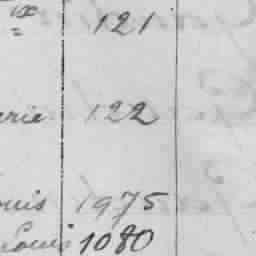 ix 121
erie 122
ouis 1975
Louis 1080